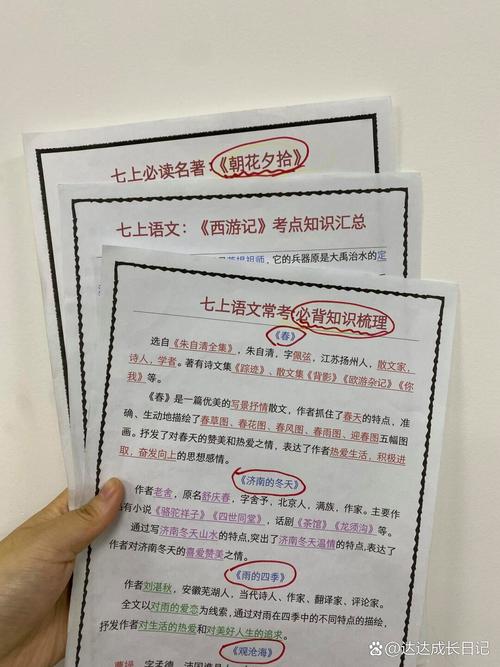 七上必读名著:《朝花夕拾》
七上语文:《西游记》考点知识汇总
祖师,它的兵器原是大禹治水的定
七上语文常考必背知识梳理
《春》
选自《朱自清全集》,朱自清,字佩弦,江苏扬州人,散文家,
诗人,学者。著有诗文集《踪迹》、散文集《背影》《欧游杂记》《你
我》等。
《春》是一篇优美的写景抒情散文,作者抓住了春天的特点,准
确、生动地描绘了春草图、春花图、春风图、春雨图、迎春图五幅图
画。抒发了对春天的赞美和热爱之情,表达了作者热爱生活,积极进
取,奋发向上的思想感情。
《济南的冬天》
作者老舍,原名舒庆春,字舍予,北京人,满族,作家。主要作
有小说《骆驼祥子》《四世同堂》,话剧《茶馆》《龙须沟》等。
通过写济南冬天山水的特点,突出了济南冬天温情的特点,表达了
作者对济南冬天的喜爱赞美之情。
《雨的四季》
作者刘湛秋,安徽芜湖人,当代诗人、作家、翻译家、评论家。
全文以对雨的爱恋为线索,通过对雨在四季中的不同特点的描绘,
抒发作者对生活的热爱和对美好人生的追求。
《观沧海》
曹操,字孟德
达达成长日记